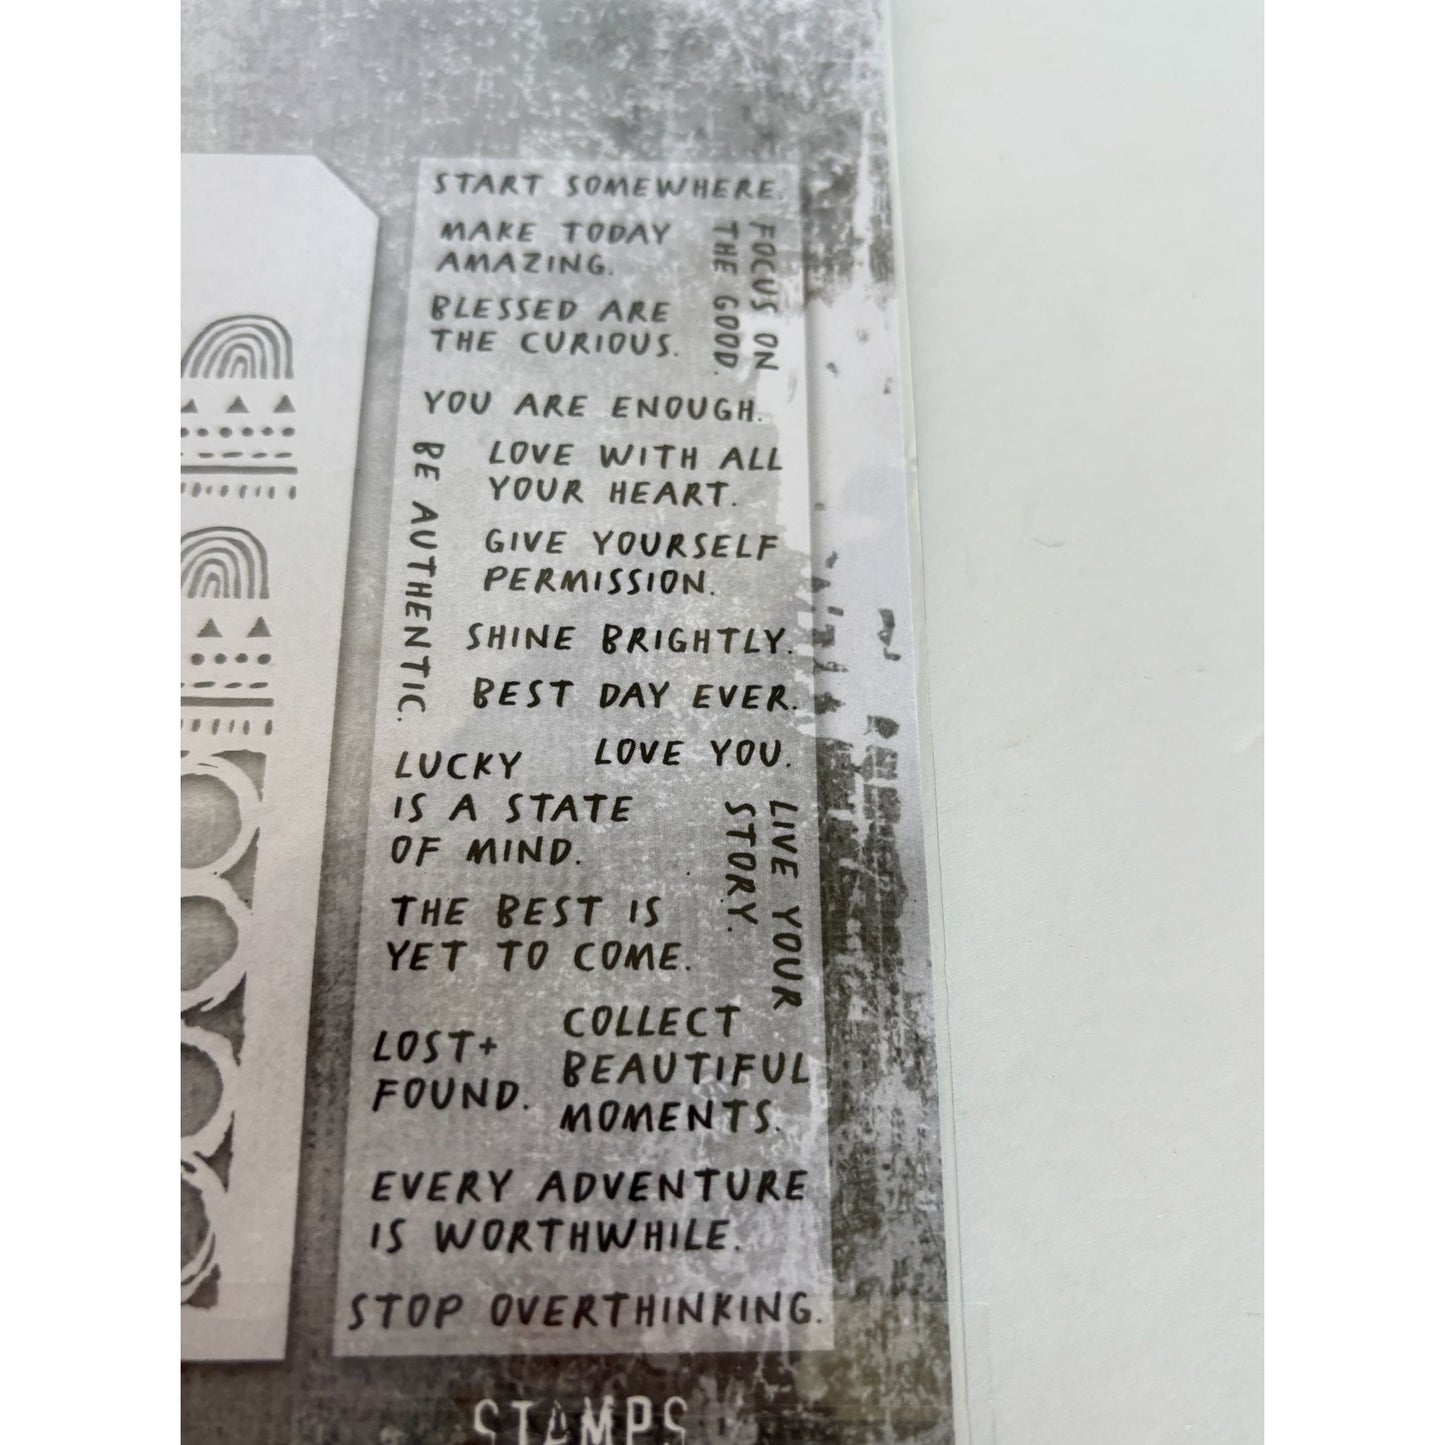 START SOMEWHERE.
MAKE TODAY
AMAZING.
FOCUS ON
THE GOOD.
BLESSED ARE
THE CURIOUS.
YOU ARE ENOUGH.
BE AUTHENTIC.
LOVE WITH ALL
YOUR HEART.
GIVE YOURSELF
PERMISSION.
SHINE BRIGHTLY.
BEST DAY EVER.
LOVE YOU.
LUCKY
IS A STATE
OF MIND.
LIVE YOUR
STORY.
THE BEST IS
YET TO COME.
LOST+
FOUND.
COLLECT
BEAUTIFUL
MOMENTS.
EVERY ADVENTURE
IS WORTHWHILE.
STOP OVERTHINKING.
STAMPS